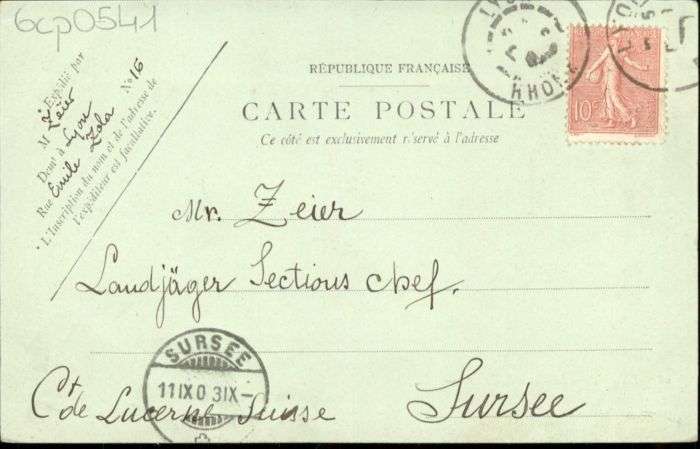 6cp0541
Expédié par
M Zeier
Demt à Lyon
Rue Emile Zola No 16
L'Inscription du nom et de l'adresse de
l'expéditeur est facultative.
RÉPUBLIQUE FRANÇAISE
CARTE POSTALE
Ce côté est exclusivement réservé à l'adresse
LYO
RHONE
10c
LYO
Mr. Zeier
Landjäger Sections Chef.
SURSEE
11 IX 03 IX-
Ct de Lucerne Suisse Sursee